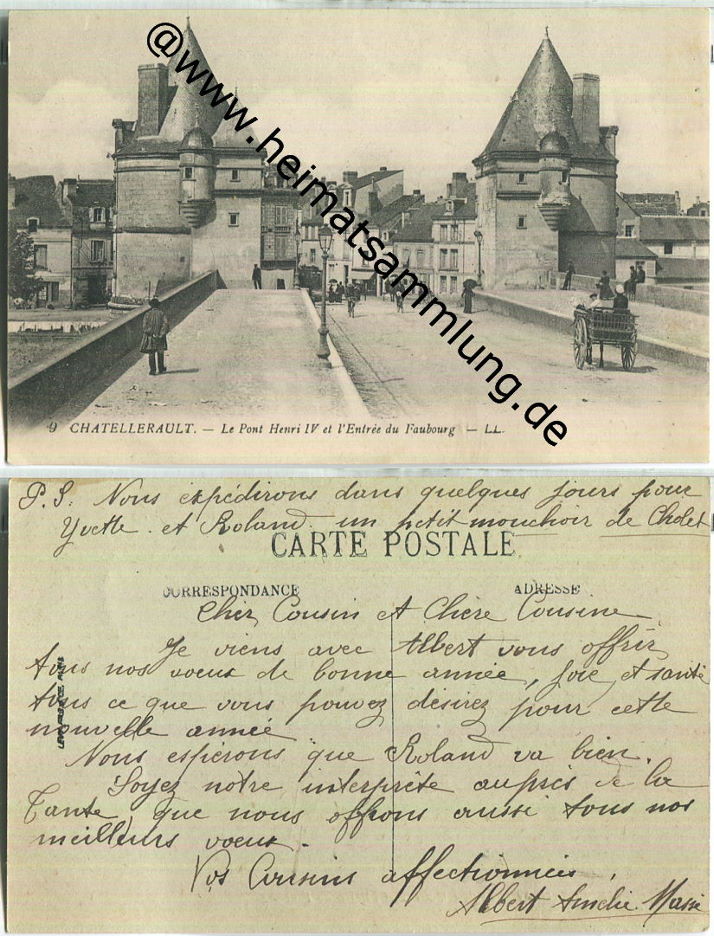 @www.heimatsammlung.de
9 CHATELLERAULT. — Le Pont Henri IV et l'Entrée du Faubourg — LL.
P.S. Nous expédirons dans quelques jours pour
Yvette et Roland un petit mouchoir de Cholet
CARTE POSTALE
CORRESPONDANCE
ADRESSE
Cher Cousin et Chère Cousine
Je viens avec Albert vous offrir
tous nos voeux de bonne année, joie et santé
tous ce que vous pouvez désirez pour cette
nouvelle année
Nous espérons que Roland va bien.
Soyez notre interprète auprès de la
Tante que nous offrons aussi tous nos
meilleurs voeux.
Vos Cousins affectionnés,
Albert Amélie Massé